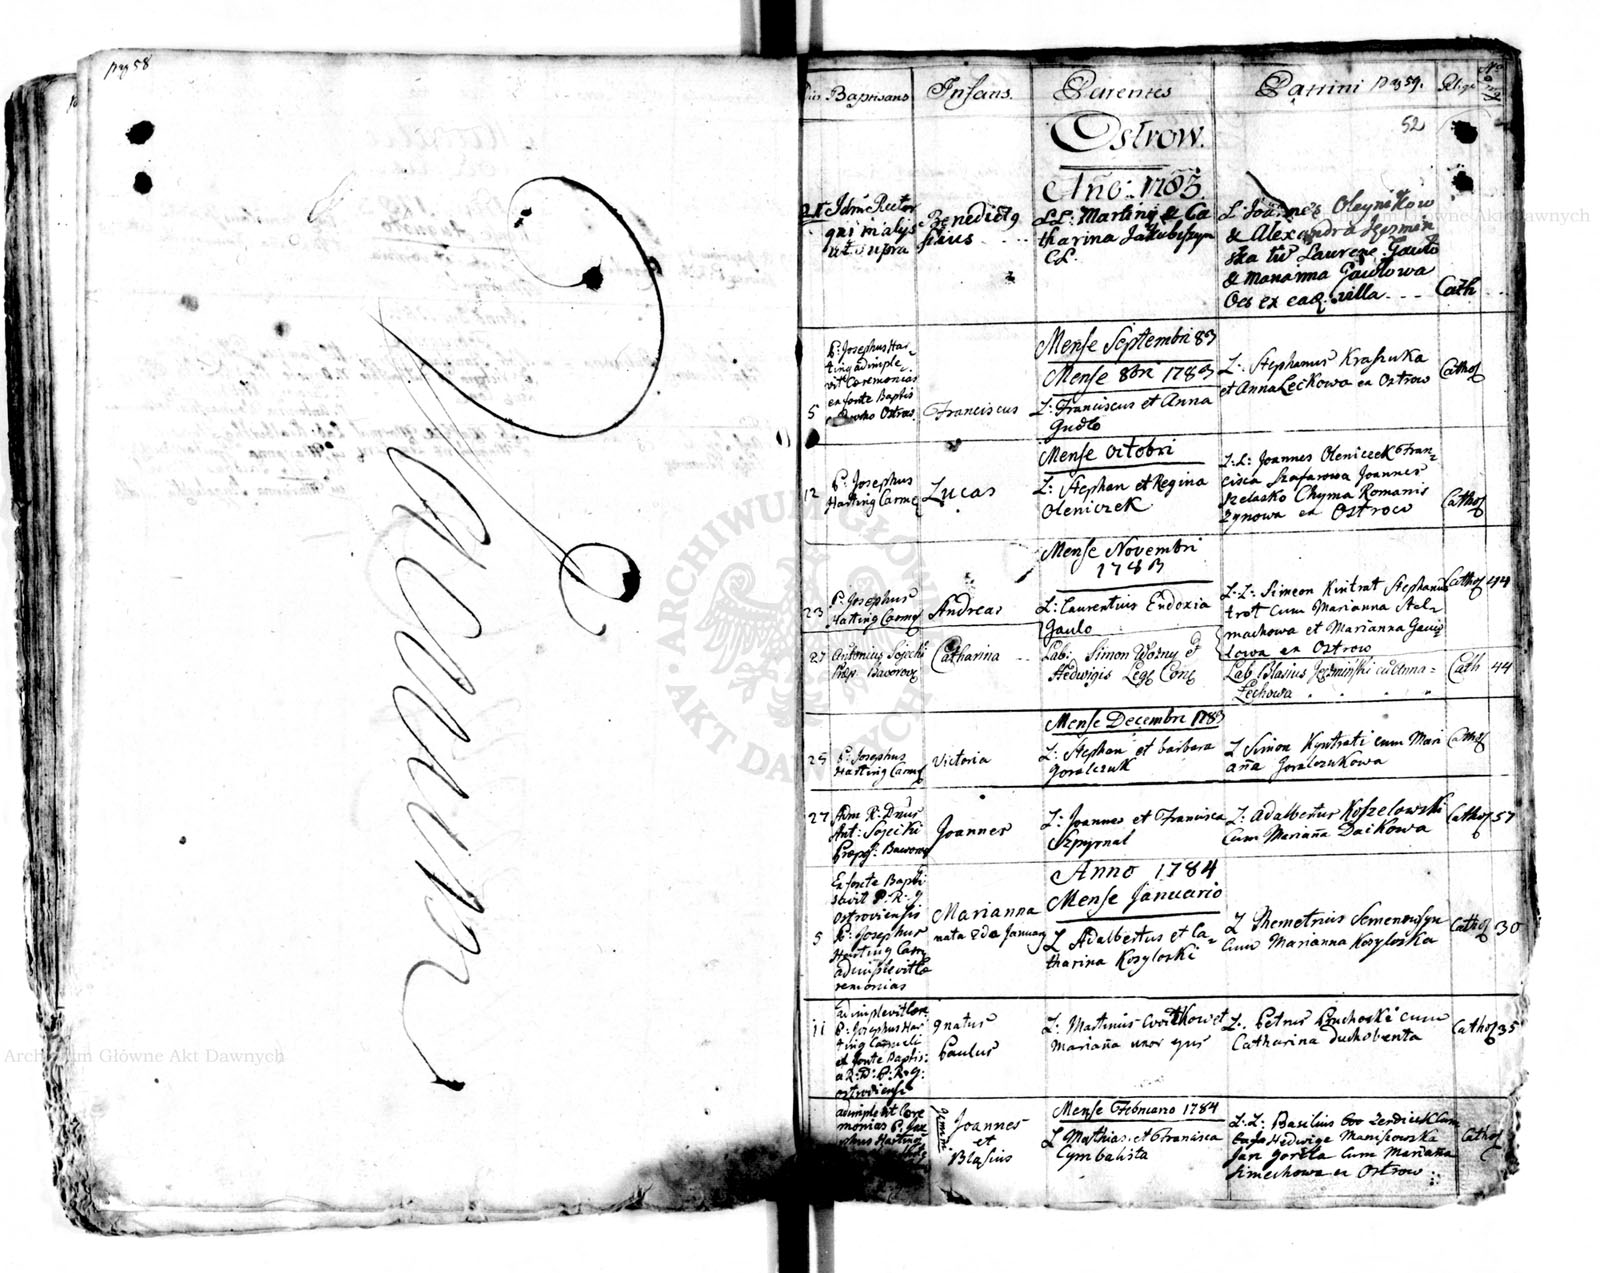 pag 58
Vacuum
Baptisans Infans. Parentes Patrini pag 59. Relig No
52
Ostrow.
Año: 1783
21 Idm Rector
qui in alys
ut supra
Benedictq
filius
L.L. Martinq & Ca
tharina Jakubiszyn
CL.
L Joannes Oleynikow
& Alexandra
ska tū Laurene: Gawło
& Marianna Gawłowa
Oēs ex eaq villa Cath
5
P: Josephus Har-
ting adimple-
vit Ceremonias
ex fonte Baptis
Ostrow
Franciscus
Mense Septembri 83
Mense 8bri 1783
L: Franciscus et Anna
Gudło
L: Stephanus Kraszuka
et Anna Leckowa ex Ostrow
Cathol
12
P: Josephus
Harting Carme
Lucas
Mense octobri
L: Stephan et Regina
Oleniczek
L: L: Joannes Oleniczek Fran=
cisca Szafarowa Joannes
szelasko Chyma Romanis
zynowa ex Ostrow
Cathol
23
P: Josephus
Harting Carme
Andreas
Mense Novembri
1783
L: Laurentius Eudoxia
Gaulo
L: L: Simeon Kintrat Stephanus
trot cum Marianna Stel-
machowa et Marianna Gaw
lowa ex Ostrow
Cathol 44
27
Antonius Sojecki
Præp. Baworov
Catharina
Lab: Simon Wozny et
Hedwigis Leg Conj
Lab Blasius Jezminski cū Anna=
Lechowa
Cath 44
25
P: Josephus
Harting Carme
Victoria
Mense Decembri 1783
L: Stephan et barbara
Goralczuk
L Simon Kyntrati cum Mari
aña Goralczukowa
Cathol
27
Adm R: Dnus
Ant: Sojecki
Præpos: Baworo
Joannes
L: Joannes et Francisca
Szpyrnal
L: Adalbertus Koszelowski
cum Mariaña Daikowa
Cathol 57
5
Ex fonte Bapti
savit P: R: g
Ostroviensis
P: Josephus
Harting Carm
adimplevit Ce
remonias
Marianna
nata 2da January
Anno 1784
Mense Januario
L Adalbertus et Ca-
tharina Kozyloski
L Themetrius Semen
cum Marianna Kozyloska
Cathol 30
11
adimplevit Cere
P: Josephus Har
ting Carmeli
ex fonte Baptis:
a R: D: P: R: g:
ostroviensi
gnatus
Paulus
L: Martinus et
Mariaña uxor ejus
L: Petrus cum
Catharina duchobenta
Cathol 35
adimplevit Cere
monias P. Jose
phus Harting
Gemini
Joannes
et
Blasius
Mense Februario 1784
L Mathias et Francisca
Cymbalista
L: L: Basilius
Hedwige Maniszowska
Jan gorela cum Mariaña
Simechowa ex Ostrow
Cathol
ARCHIWUM GŁÓWNE AKT DAWNYCH
Archiwum Główne Akt Dawnych
Archiwum Główne Akt Dawnych